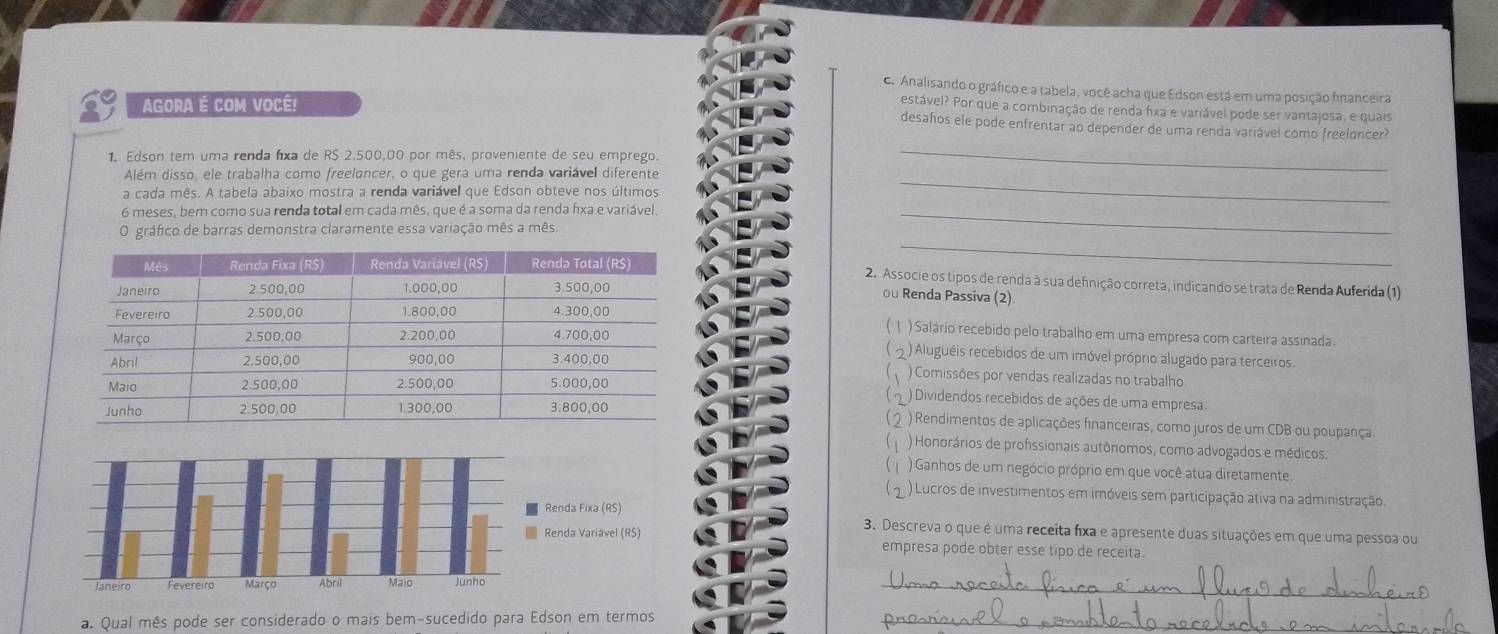 AGORA É COM VOCÊ!
1. Edson tem uma renda fixa de R$ 2.500,00 por mês, proveniente de seu emprego.
Além disso, ele trabalha como freelancer, o que gera uma renda variável diferente
a cada mês. A tabela abaixo mostra a renda variável que Edson obteve nos últimos
6 meses, bem como sua renda total em cada mês, que é a soma da renda fixa e variável.
O gráfico de barras demonstra claramente essa variação mês a mês.
Mês Renda Fixa (R$) Renda Variável (R$) Renda Total (R$)
Janeiro 2.500,00 1.000,00 3.500,00
Fevereiro 2.500,00 1.800,00 4.300,00
Março 2.500,00 2.200,00 4.700,00
Abril 2.500,00 900,00 3.400,00
Maio 2.500,00 2.500,00 5.000,00
Junho 2.500,00 1.300,00 3.800,00
Renda Fixa (R$)
Renda Variável (R$)
Janeiro Fevereiro Março Abril Maio Junho
a. Qual mês pode ser considerado o mais bem-sucedido para Edson em termos
c. Analisando o gráfico e a tabela, você acha que Edson está em uma posição financeira
estável? Por que a combinação de renda fixa e variável pode ser vantajosa, e quais
desafios ele pode enfrentar ao depender de uma renda variável como freelancer?
2. Associe os tipos de renda à sua definição correta, indicando se trata de Renda Auferida (1)
ou Renda Passiva (2).
( 1 ) Salário recebido pelo trabalho em uma empresa com carteira assinada.
( 2 ) Aluguéis recebidos de um imóvel próprio alugado para terceiros.
( 1 ) Comissões por vendas realizadas no trabalho.
( 2 ) Dividendos recebidos de ações de uma empresa.
( 2 ) Rendimentos de aplicações financeiras, como juros de um CDB ou poupança.
( 1 ) Honorários de profissionais autônomos, como advogados e médicos.
( 1 ) Ganhos de um negócio próprio em que você atua diretamente.
( 2 ) Lucros de investimentos em imóveis sem participação ativa na administração.
3. Descreva o que é uma receita fixa e apresente duas situações em que uma pessoa ou
empresa pode obter esse tipo de receita.
Uma receita é um de dinheiro
e em